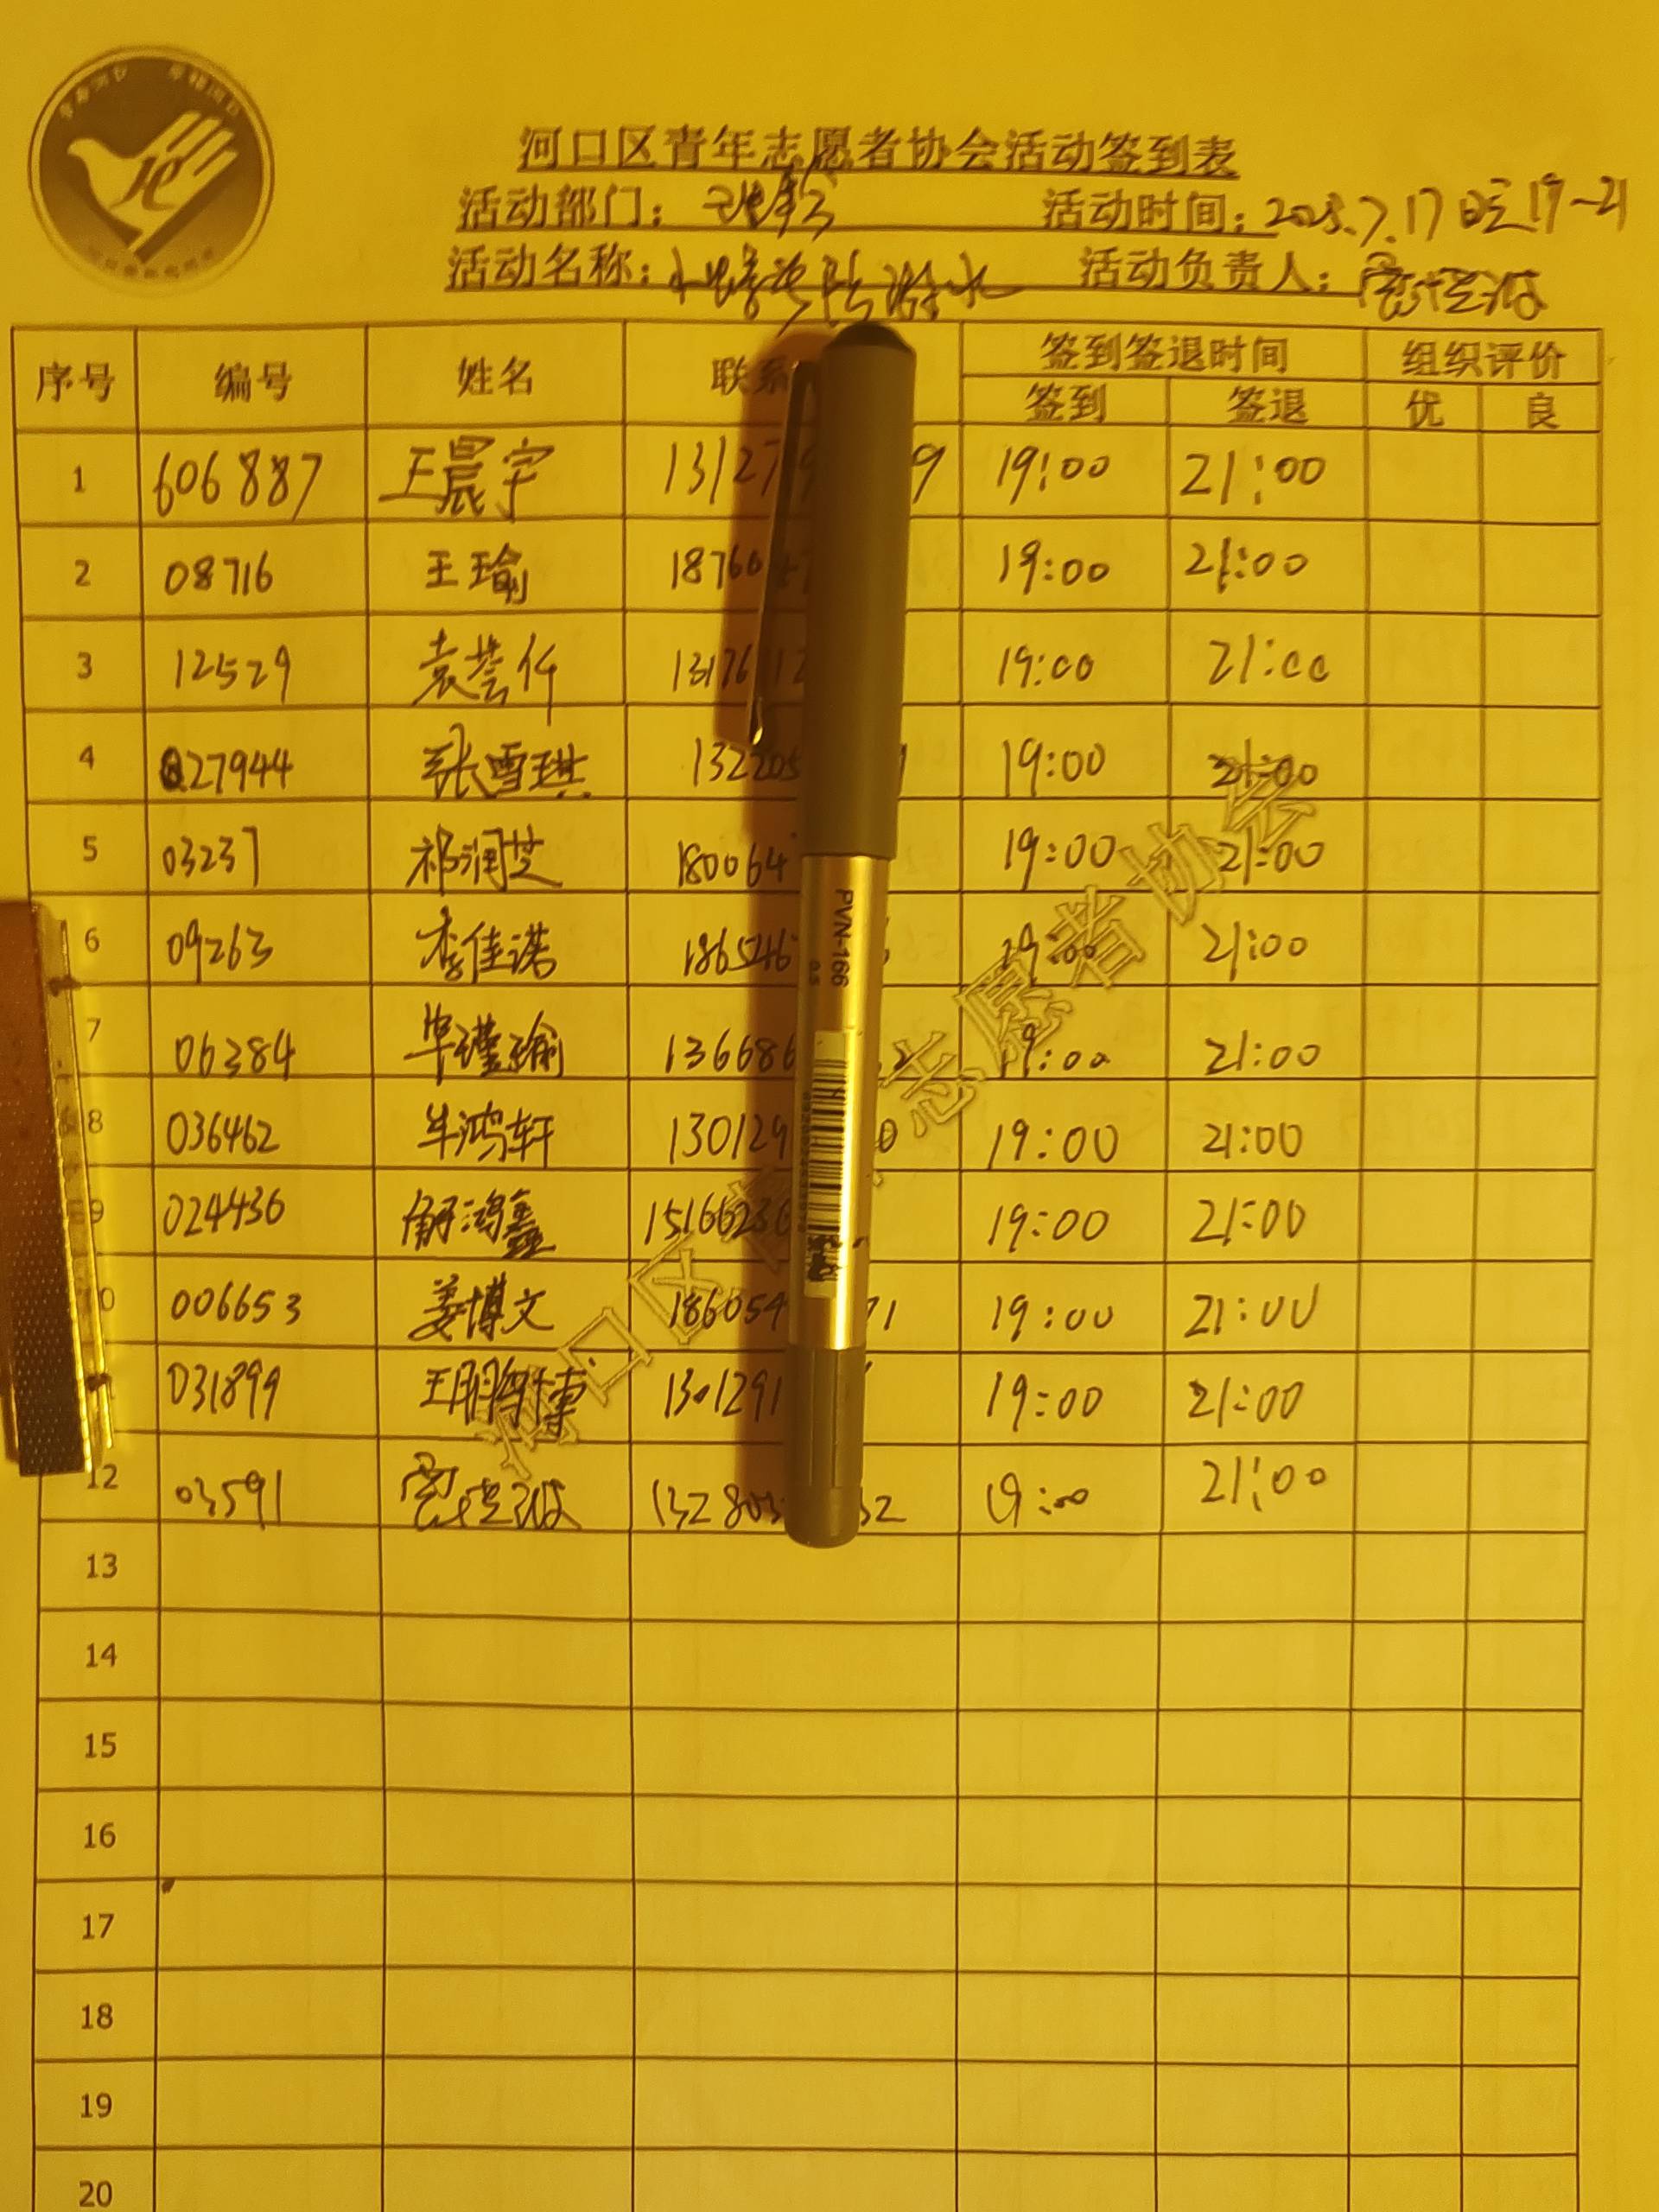 河口区青年志愿者协会活动签到表
活动部门: 活动时间: 2025.7.17 晚19-21
活动名称: 防溺水 活动负责人:
序号 编号 姓名 联系 签到签退时间 组织评价
签到 签退 优 良
1 606887 王晨宇 13127 9 19:00 21:00
2 08716 王瑜 18766 19:00 21:00
3 12529 袁芸仟 13176 12 19:00 21:00
4 027944 张雪琪 132205 19:00 21:00
5 03237 祁润芝 180064 19:00 21:00
6 09263 李佳诺 186546 19:00 21:00
7 06384 毕瑾瑜 136686 2 19:00 21:00
8 036462 牛鸿轩 130129 0 19:00 21:00
9 024436 解鸿鑫 15166236 19:00 21:00
10 006653 姜博文 186054 71 19:00 21:00
031899 王鹏博 1301291 19:00 21:00
12 03591 132803 32 19:00 21:00
13
14
15
16
17
18
19
20
河口区 志愿者协会
PVN-166
0.5